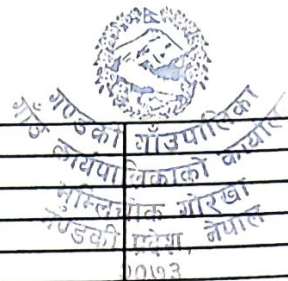 गण्डकी गाँउपालिका
गाँउ कार्यपालिकाको कार्यालय
घ्याल्चोक गोरखा
गण्डकी प्रदेश, नेपाल
२०७३